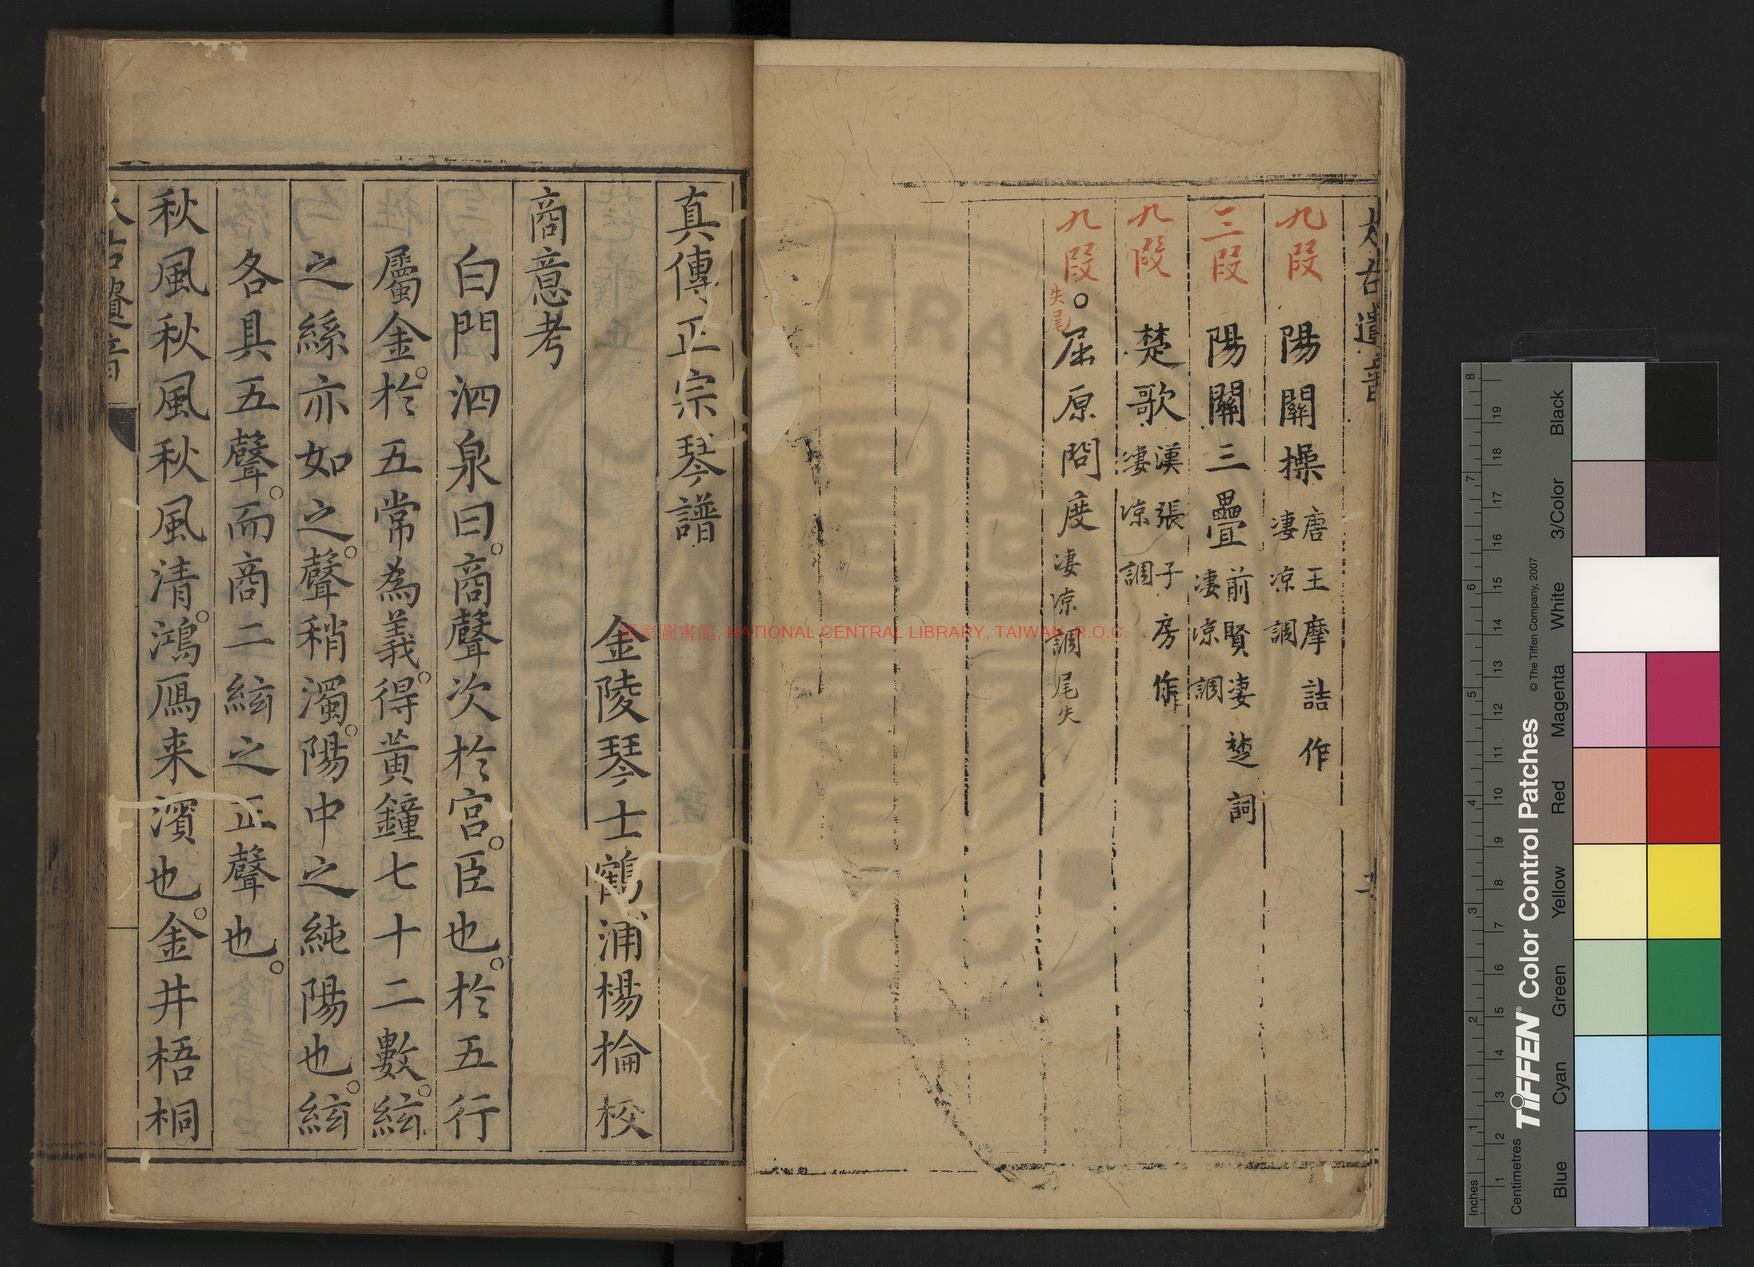 太古遺音
九段 陽關操 唐王摩詰作 淒凉調
三段 陽關三疊 前賢淒楚詞 淒凉調
九段 楚歌 漢張子房作 淒凉調
九段 失尾 ○屈原問度 淒凉調 尾失
真傳正宗琴譜
金陵琴士鶴浦楊掄校
商意考
白門泗泉曰商聲次於宮臣也於五行
屬金於五常為義得黃鐘七十二數絃
之絲亦如之聲稍濁陽中之純陽也絃
各具五聲而商二絃之正聲也
秋風秋風秋風清鴻鴈来濱也金井梧桐
太古遺音
國家圖書館, NATIONAL CENTRAL LIBRARY, TAIWAN, R.O.C.
TIFFEN® Color Control Patches
© The Tiffen Company, 2007
Inches
Centimetres
Blue
Cyan
Green
Yellow
Red
Magenta
White
3/Color
Black